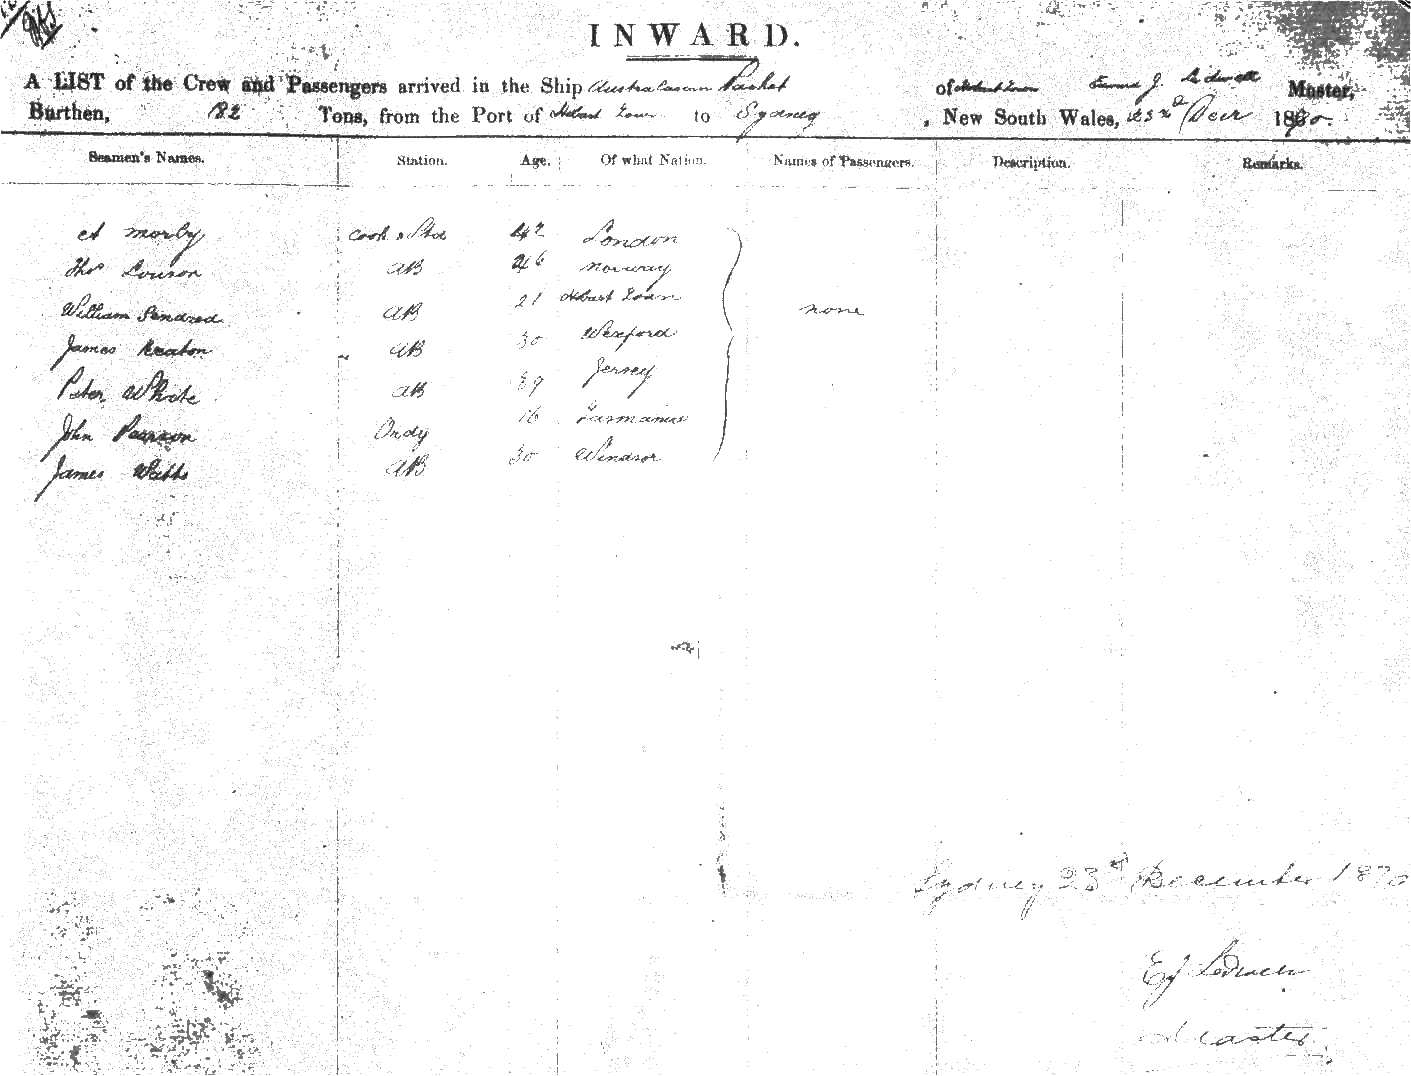 INWARD.
A LIST of the Crew and Passengers arrived in the Ship Australasian Packet of Hobart Town Edward J. Ledwell Master,
Burthen, 182 Tons, from the Port of Hobart Town to Sydney , New South Wales, 23rd Decr 1870.
Seamen's Names. Station. Age. Of what Nation. Names of Passengers. Description. Remarks.
A Morby Cook & Std 42 London
Thos Louson AB 26 Norway
William AB 21 Hobart Town none
James Keaton AB 30 Wexford
Peter White AB 39 Jersey
John Pearson Ordy 16 Tasmania
James Watts AB 30 Windsor
Sydney 23rd December 1870
EJ Ledwell
Master